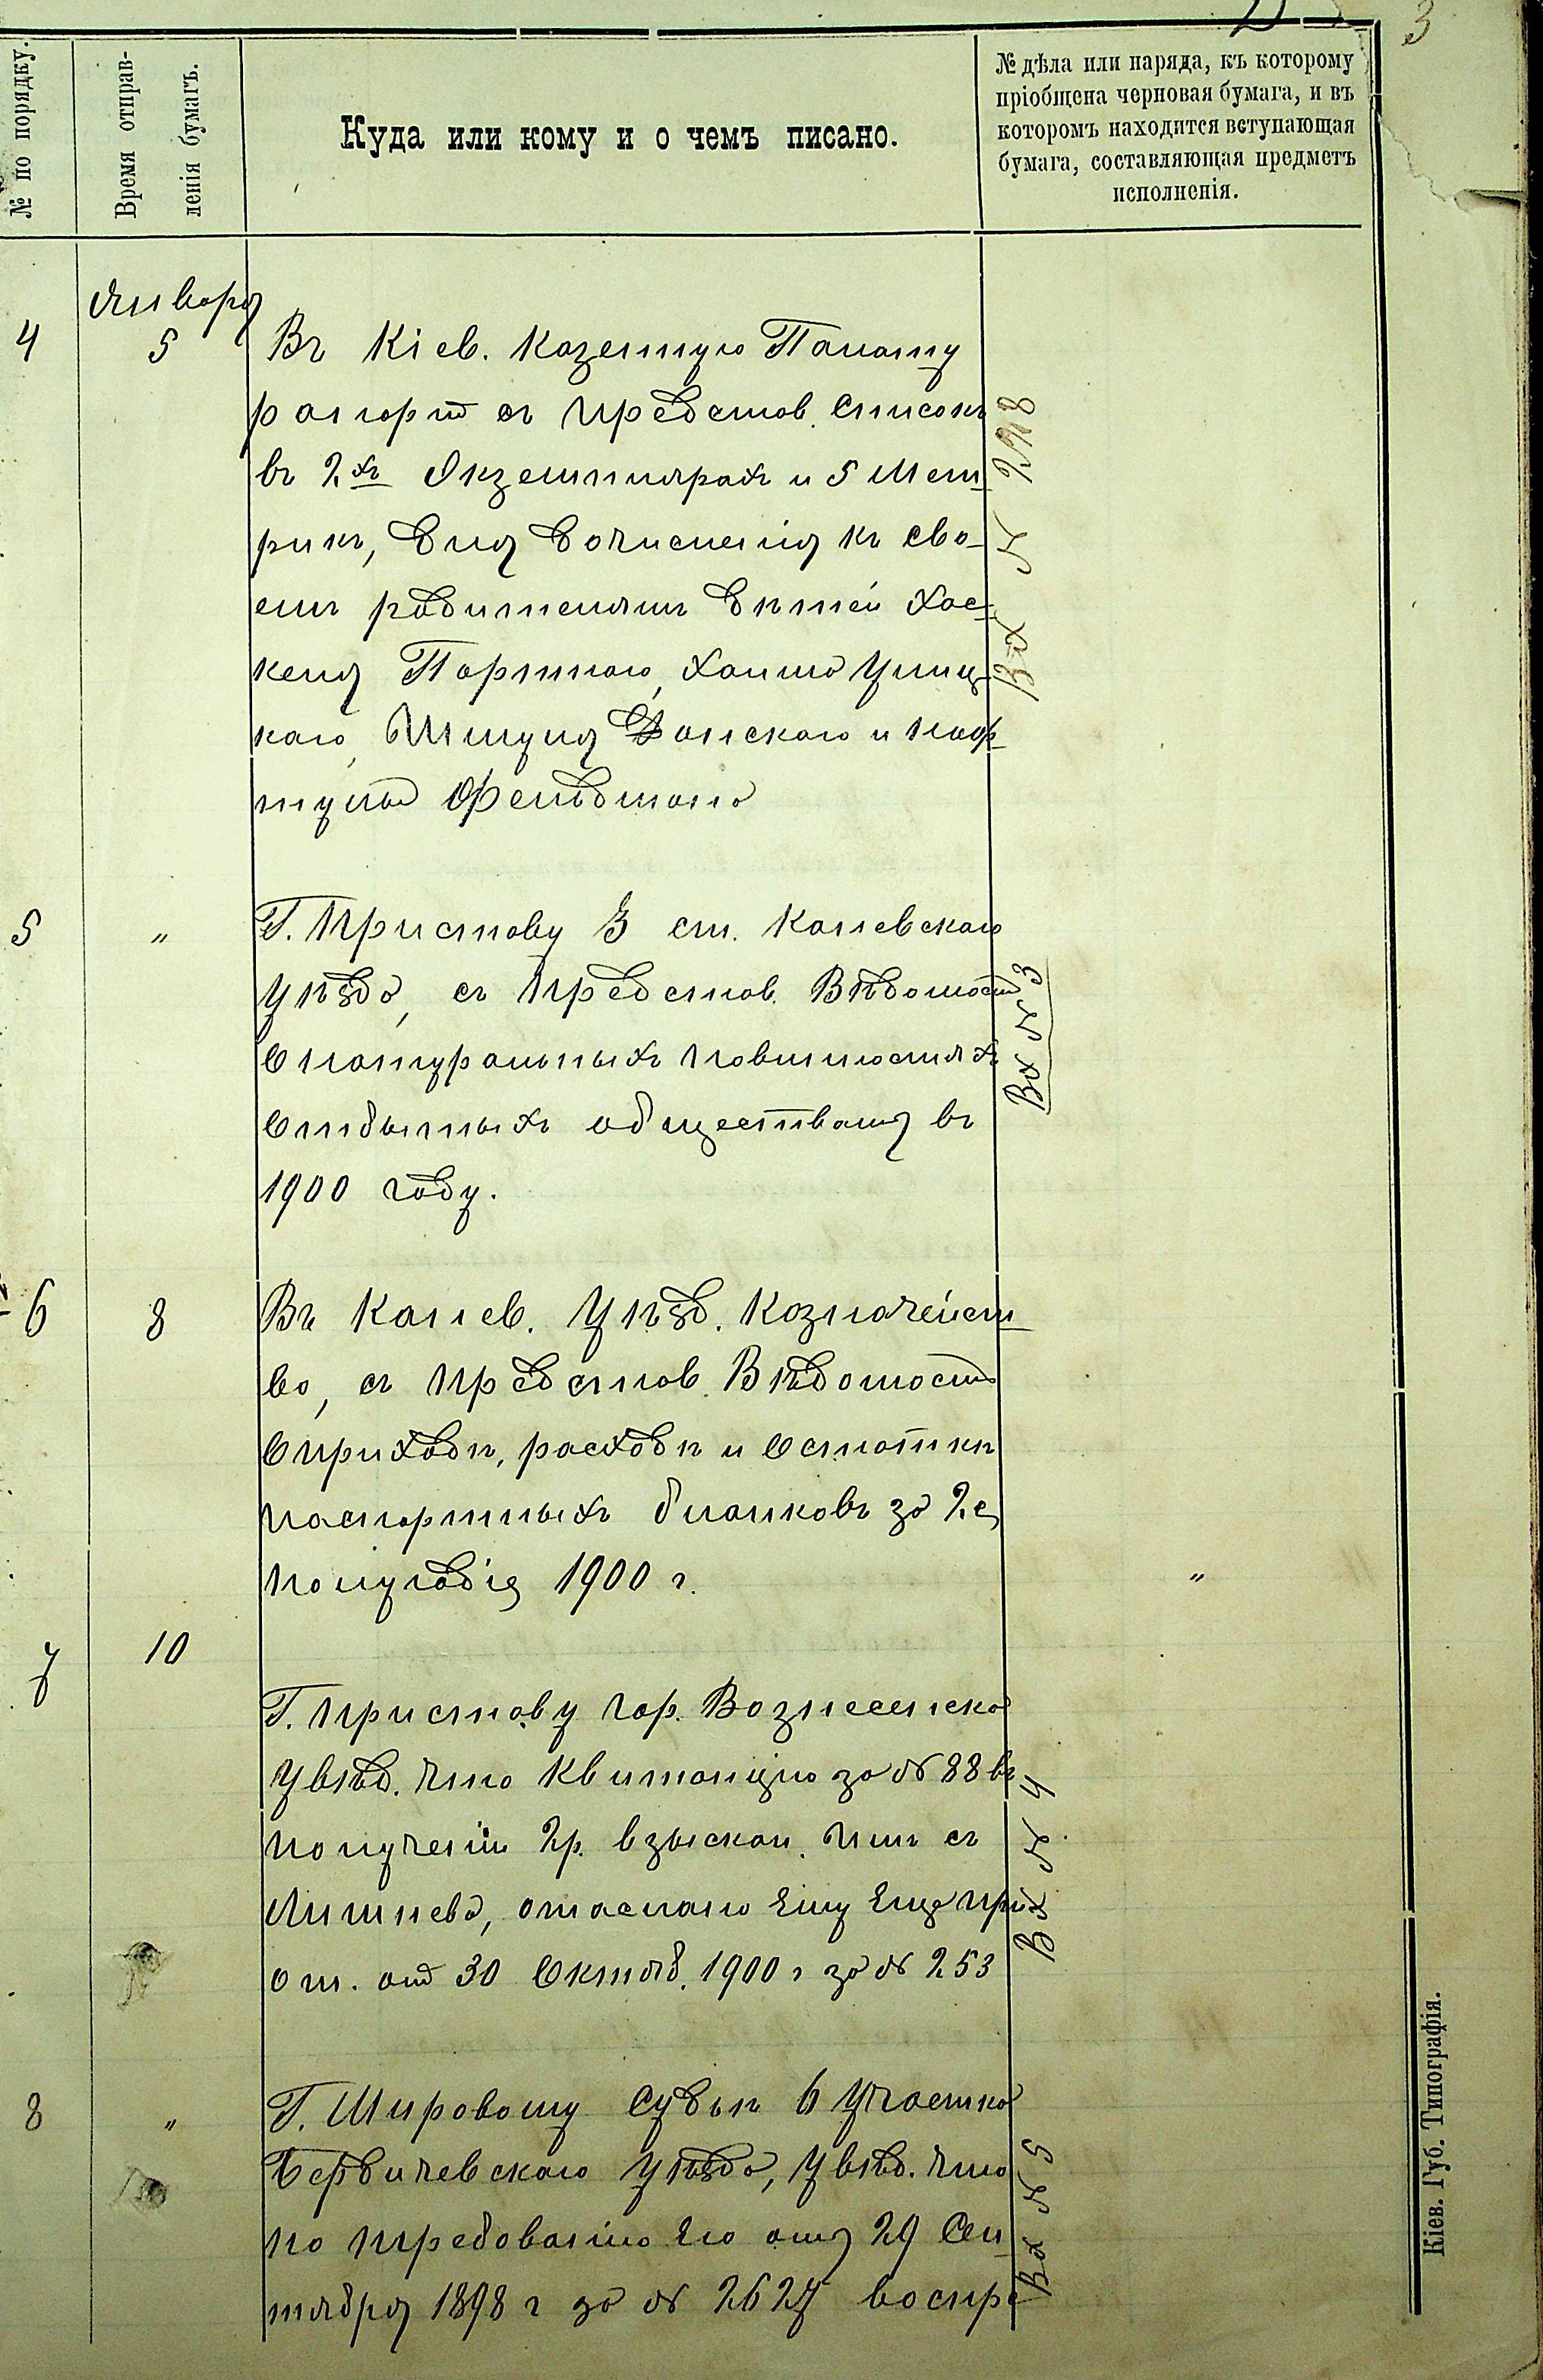 3
№ по порядку.
Время отправ-
ленія бумагъ.
Куда или кому и о чемъ писано.
№ дѣла или наряда, къ которому
пріобщена черновая бумага, и въ
которомъ находится вступающая
бумага, составляющая предметъ
исполненія.
Января
4 5 Въ Кіев. Казенную Палату
рапортъ съ представ. списокъ
въ 2хъ Экземплярахъ и 5 Мет-
рикъ, для дочисленія къ сво-
имъ родителямъ дѣтей Хас-
келя Портного, Хаима
каго, Шмуля Донского и Наф-
тулы Фельдмана
Вх № 278
5 " Г. Приставу 3 ст. Каневскаго
уѣзда, съ представ. Вѣдомость
О натуральныхъ повинностяхъ
Отбытыхъ обществамъ въ
1900 году.
Вх № 3
6 8 Въ Канев. Уѣзд. Казначейст-
во, съ представ. Вѣдомость
О приходѣ, расходѣ и Остаткѣ
паспортныхъ бланковъ за 2е
полугодіе 1900 г.
"
7 10
Г. Приставу гор. Вознесенска
Увѣд. что Квитанцію за № 88 въ
полученіи 2р. взыскан. имъ съ
Литнева, отослано Ему Еще при
от. отъ 30 Октяб. 1900 г за № 253
Вх № 4
8 " Г. Мировому Судьѣ 6 Участка
Бердичевскаго Уѣзда, Увѣд. что
по требованію Его отъ 29 Сен-
тября 1898 г за № 2627 воспре
Вх № 5
Кіев. Губ. Типографія.